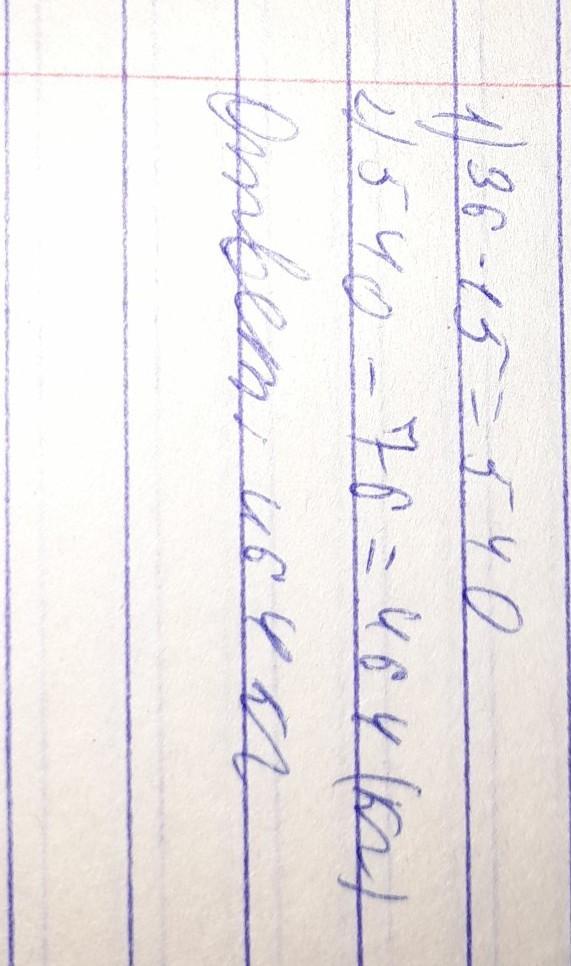 1) 36 · 15 = 540
2) 540 - 76 = 464 (кг)
Ответ: 464 кг